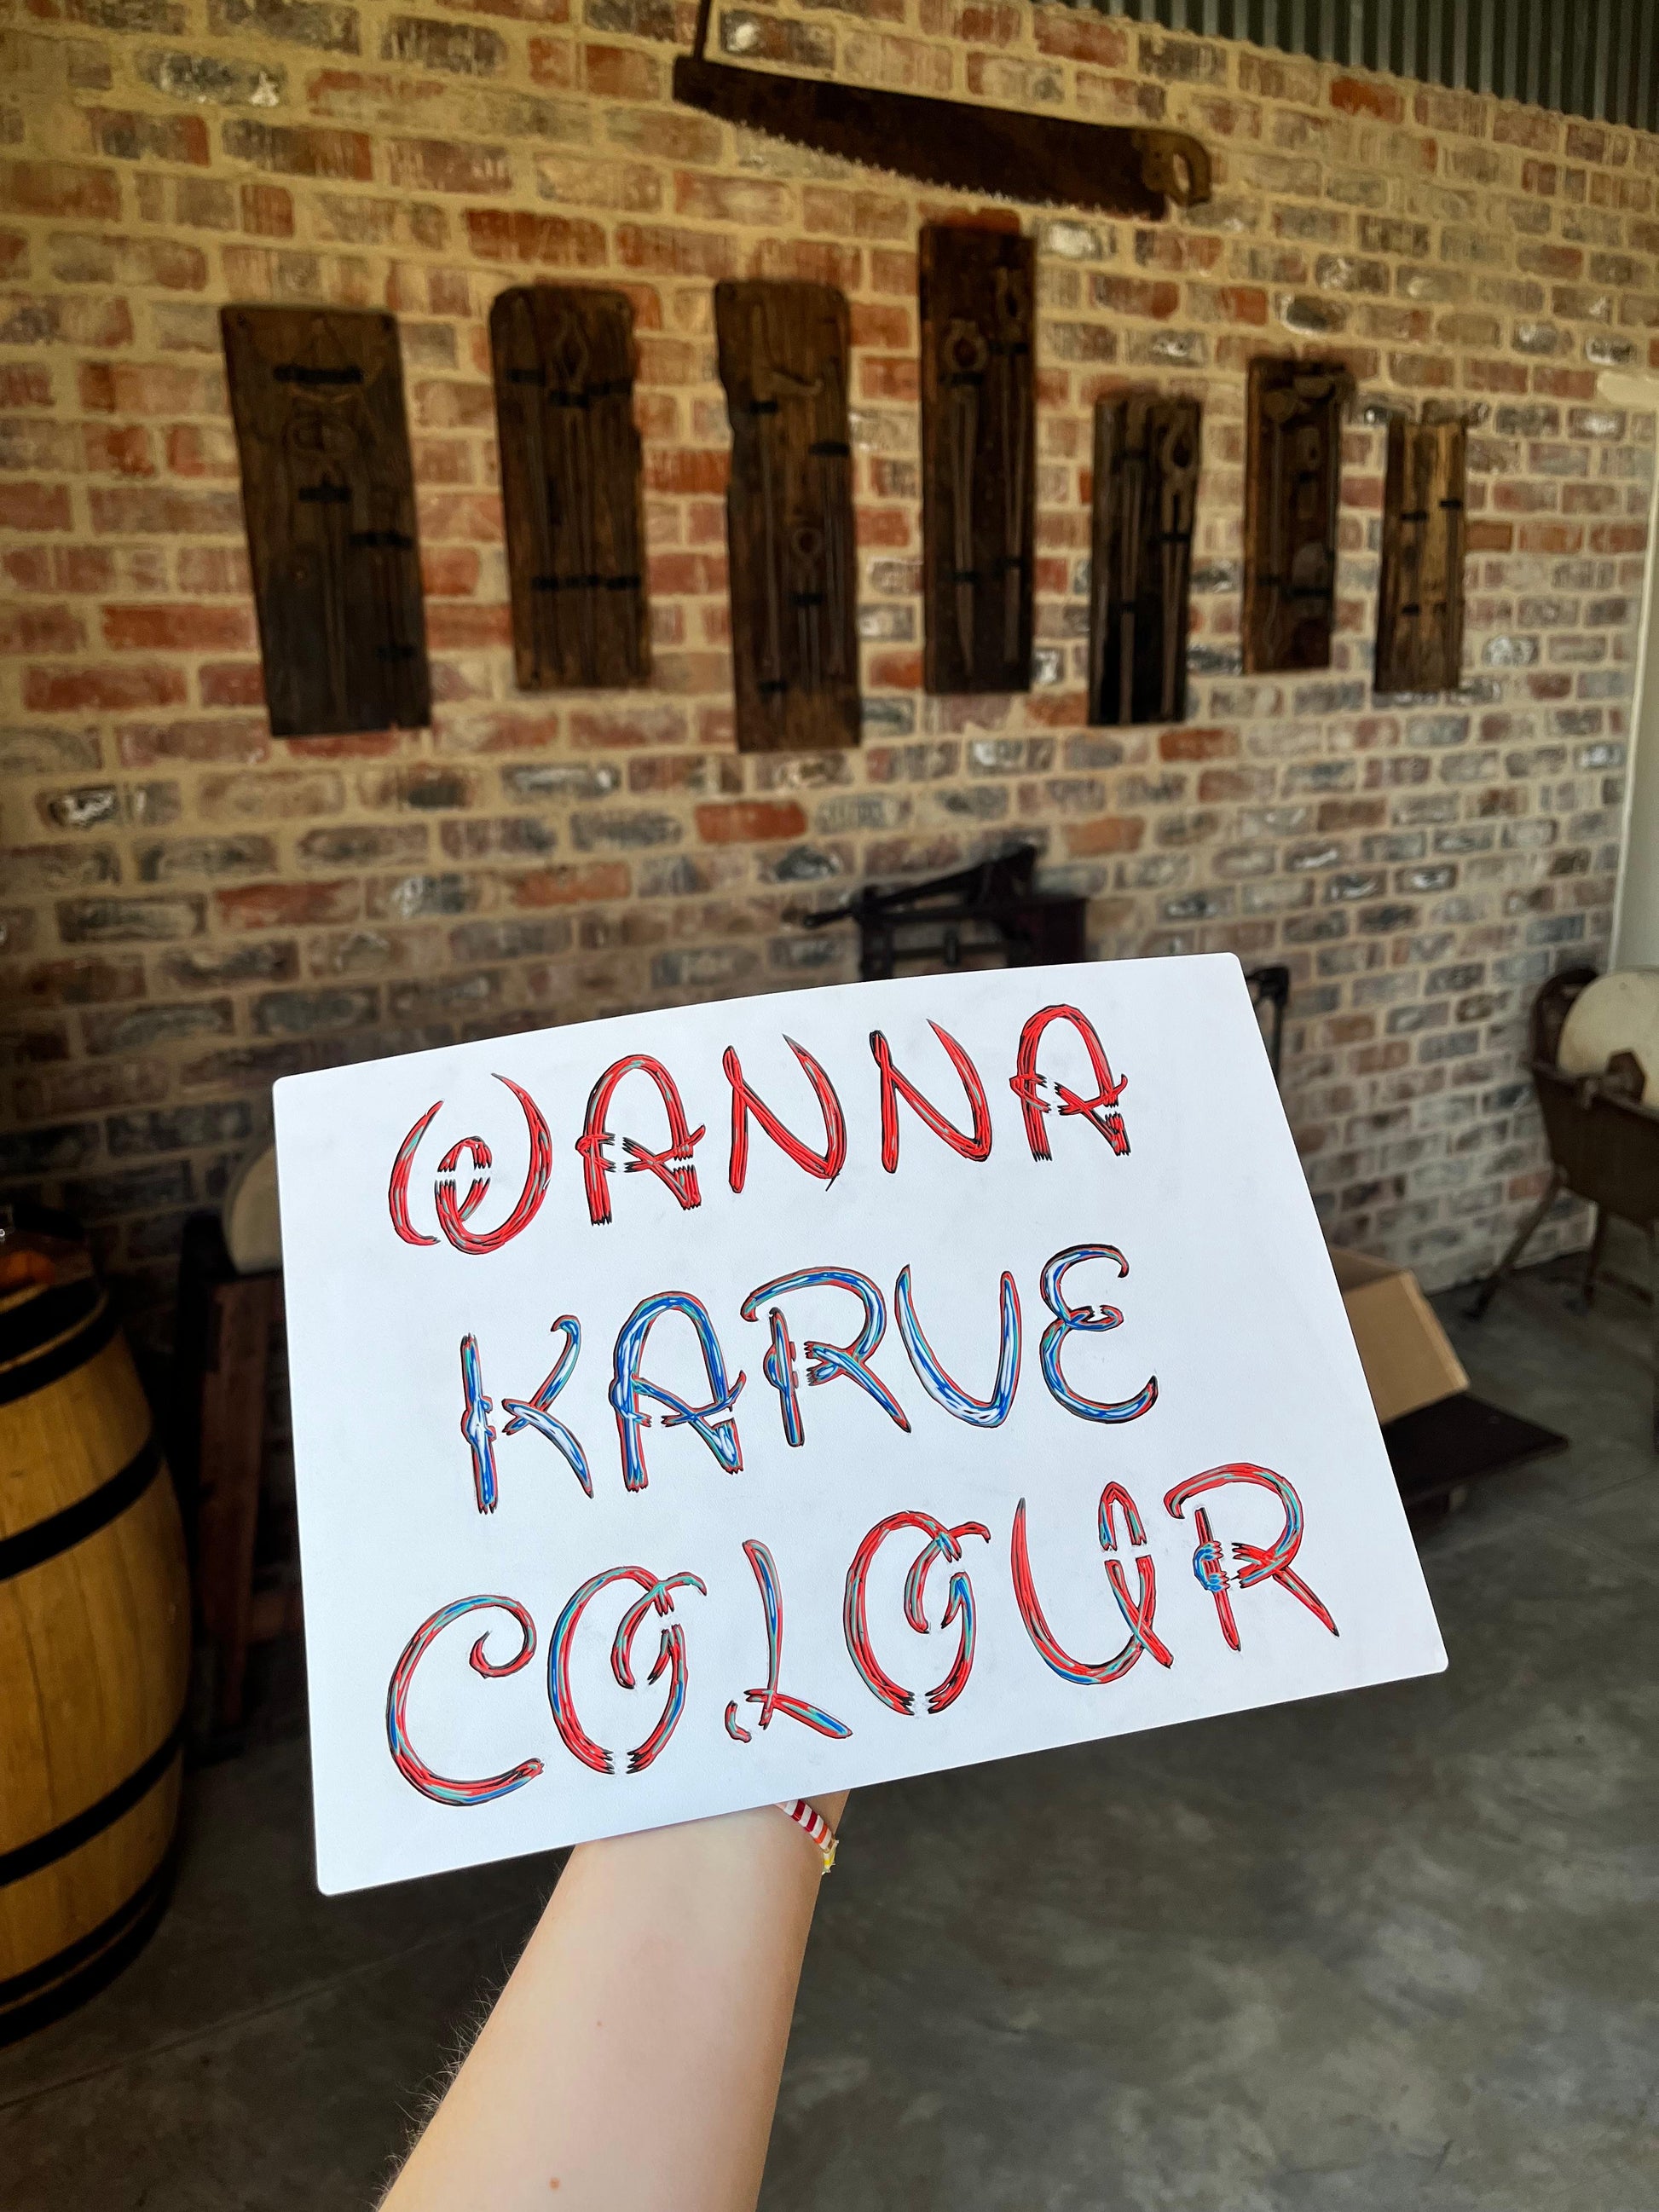 WANNA
KARVE
COLOUR